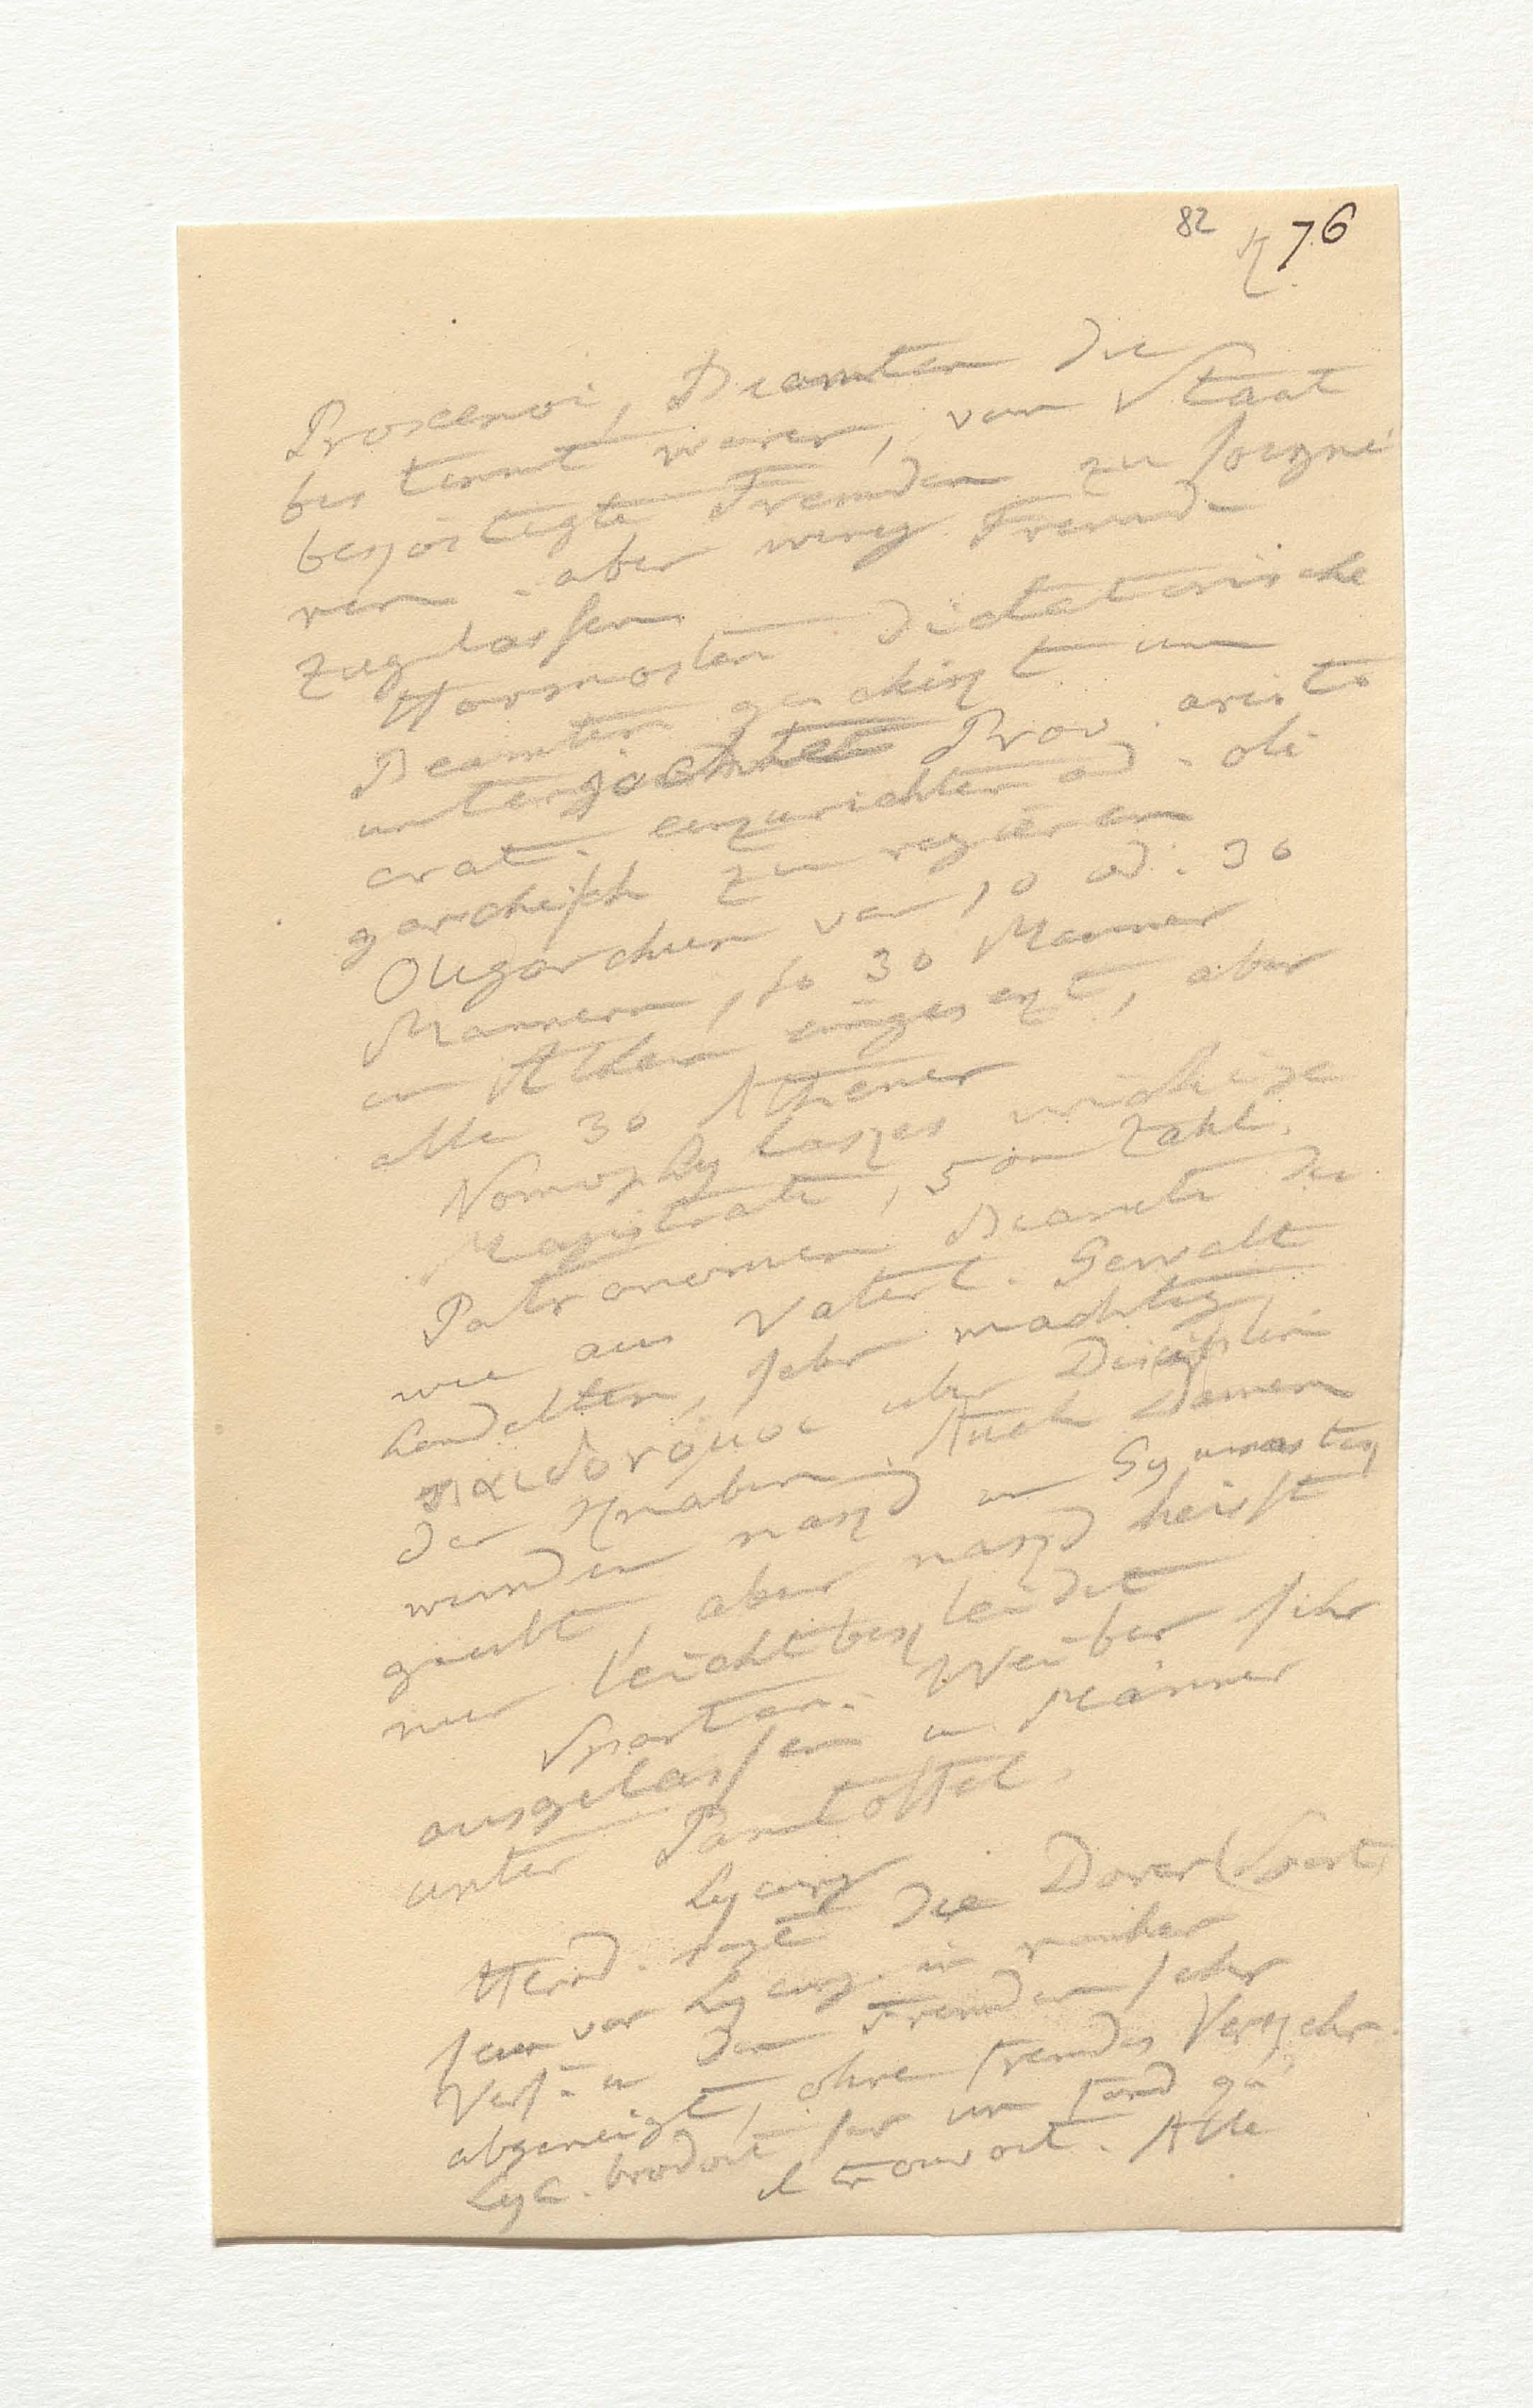 82 76
Proxenoi, Beamten die
bestimmt waren, vom Staat
beköstigte Fremden zu soigni
ren. aber wenig Fremde
zugelassen
Harmosten dictatorische
Beamten geschikt um
unterjochte Prov. aristo
crat. einzurichten od. oli
garchisch zu regieren
Oligarchien von 10 od. 30
Mannern, so 30 Manner
in Athen eingesezt, aber
alle 30 Athener
Nomophylakes wichtige
Magistrate, 5 an Zahl.
Patronomen Beamte die
wie aus Vaterl. Gewalt
handelten, sehr machtig
παιδονόμοι uber Disciplin
der Knaben. Auch Damen
wurden nakd in Gymnastik
geubt, aber nakd heisst
nur leicht bekleidet
Spartan. Weiber sehr
ausgelassen u. Männer
unter Pantoffel.
Lycurg
Herod. sagt die Dorer (Spart.
seien vor Lycurg. in
Verf. u den Fremden sehr
abgeneigt, ohne fremdes Verkehr.
Lyc. brodoit sur un fond qu'
il trouvoit. Alle